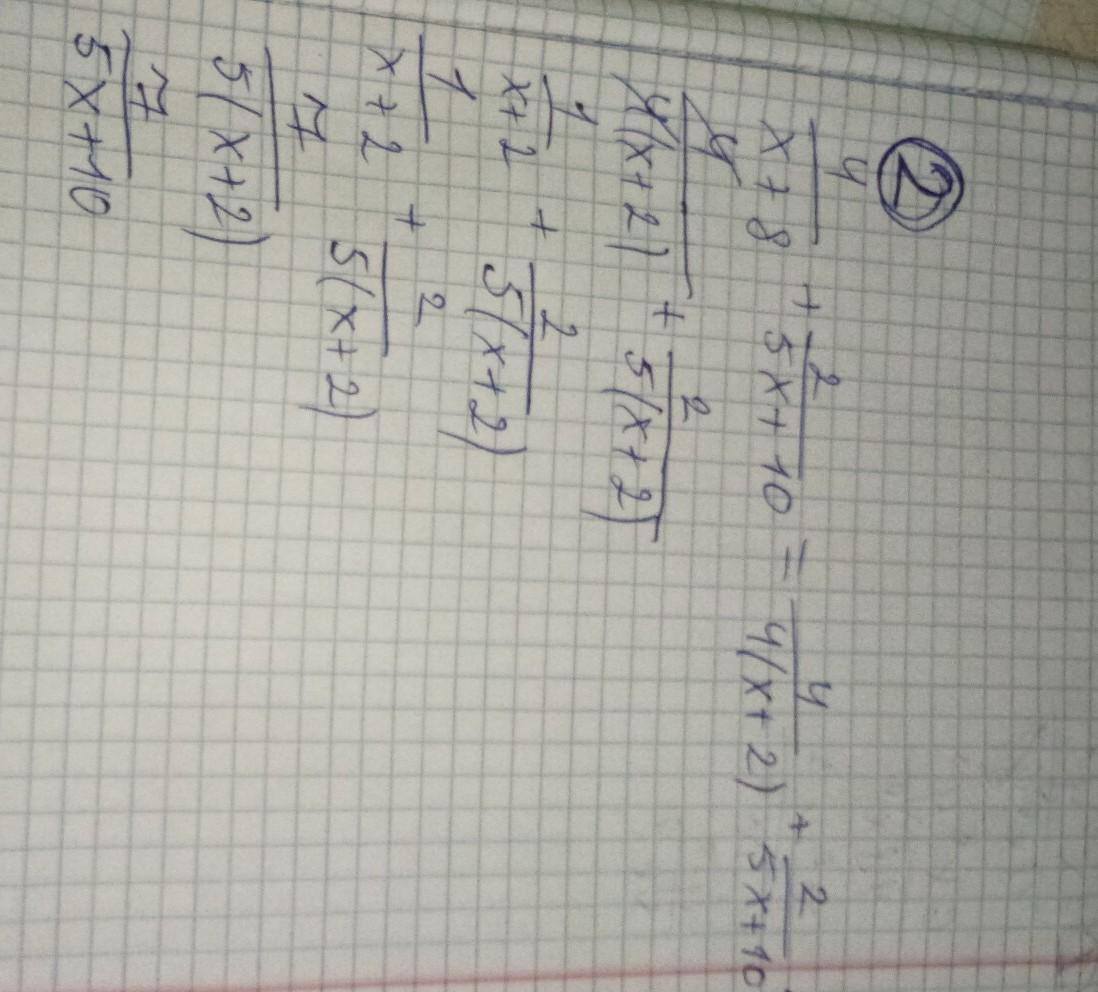 2
4/(x+8) + 2/(5x+10) = 4/(4(x+2)) + 2/(5x+10)
4/(4(x+2)) + 2/(5(x+2))
1/(x+2) + 2/(5(x+2))
1/(x+2) + 2/(5(x+2))
7/(5(x+2))
7/(5x+10)